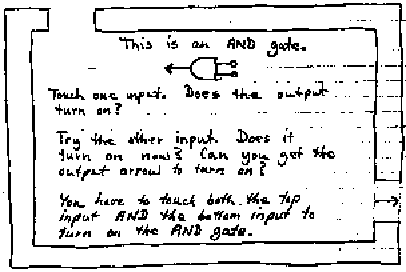 This is an AND gate.
Touch one input. Does the output
turn on?
Try the other input. Does it
turn on now? Can you get the
output arrow to turn on?
You have to touch both the top
input AND the bottom input to
turn on the AND gate.